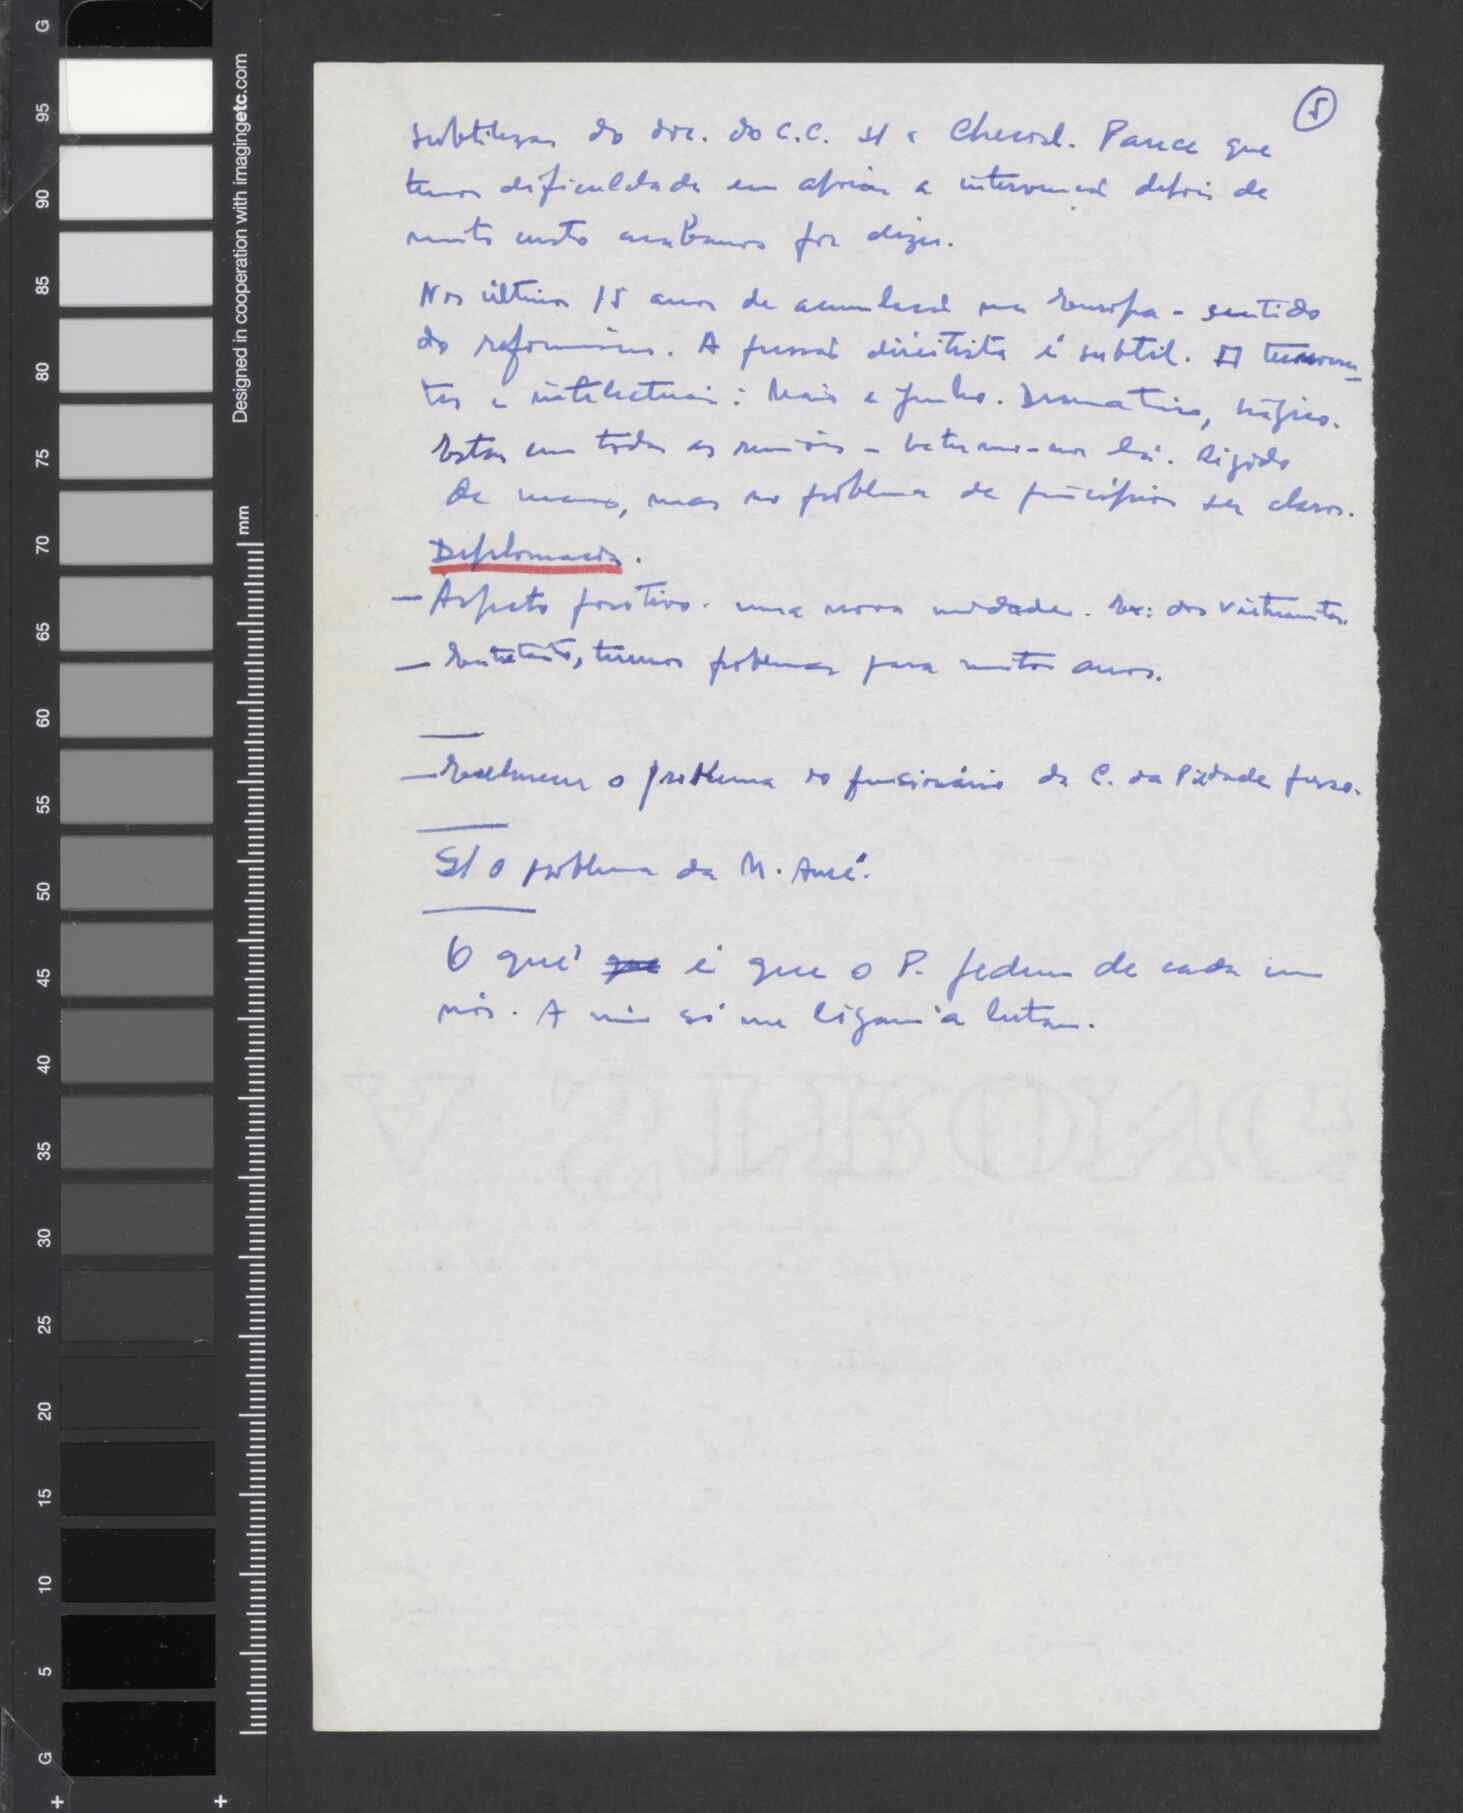 5
subtilezas do doc. do C.C. s/ a Checosl. Parece que
temos dificuldade em apoiar a intervenção depois de
muito custo acabamos por dizer.
Nos últimos 15 anos de acumulação na Europa - sentido
do reformismo. A pressão direitista é subtil.
tes e intelectuais: Maio e Junho. Dramático, trágico.
Estar em todas as reuniões - batermo-nos lá. Rígido
de mano, mas no problema de princípios ser claros.
Diplomacia.
— Aspecto positivo. uma nova unidade. Ex: dos vietnamitas.
— Entretanto, teremos problemas para muitos anos.
— Realmente o problema do funcionário da C. da Piedade
S/ o problema da M. André.
O quê que é que o P. pedem de cada um
nós. A mim só me ligam a lutar.
Designed in cooperation with imagingetc.com
mm
G
95
90
85
80
75
70
65
60
55
50
45
40
35
30
25
20
15
10
5
G